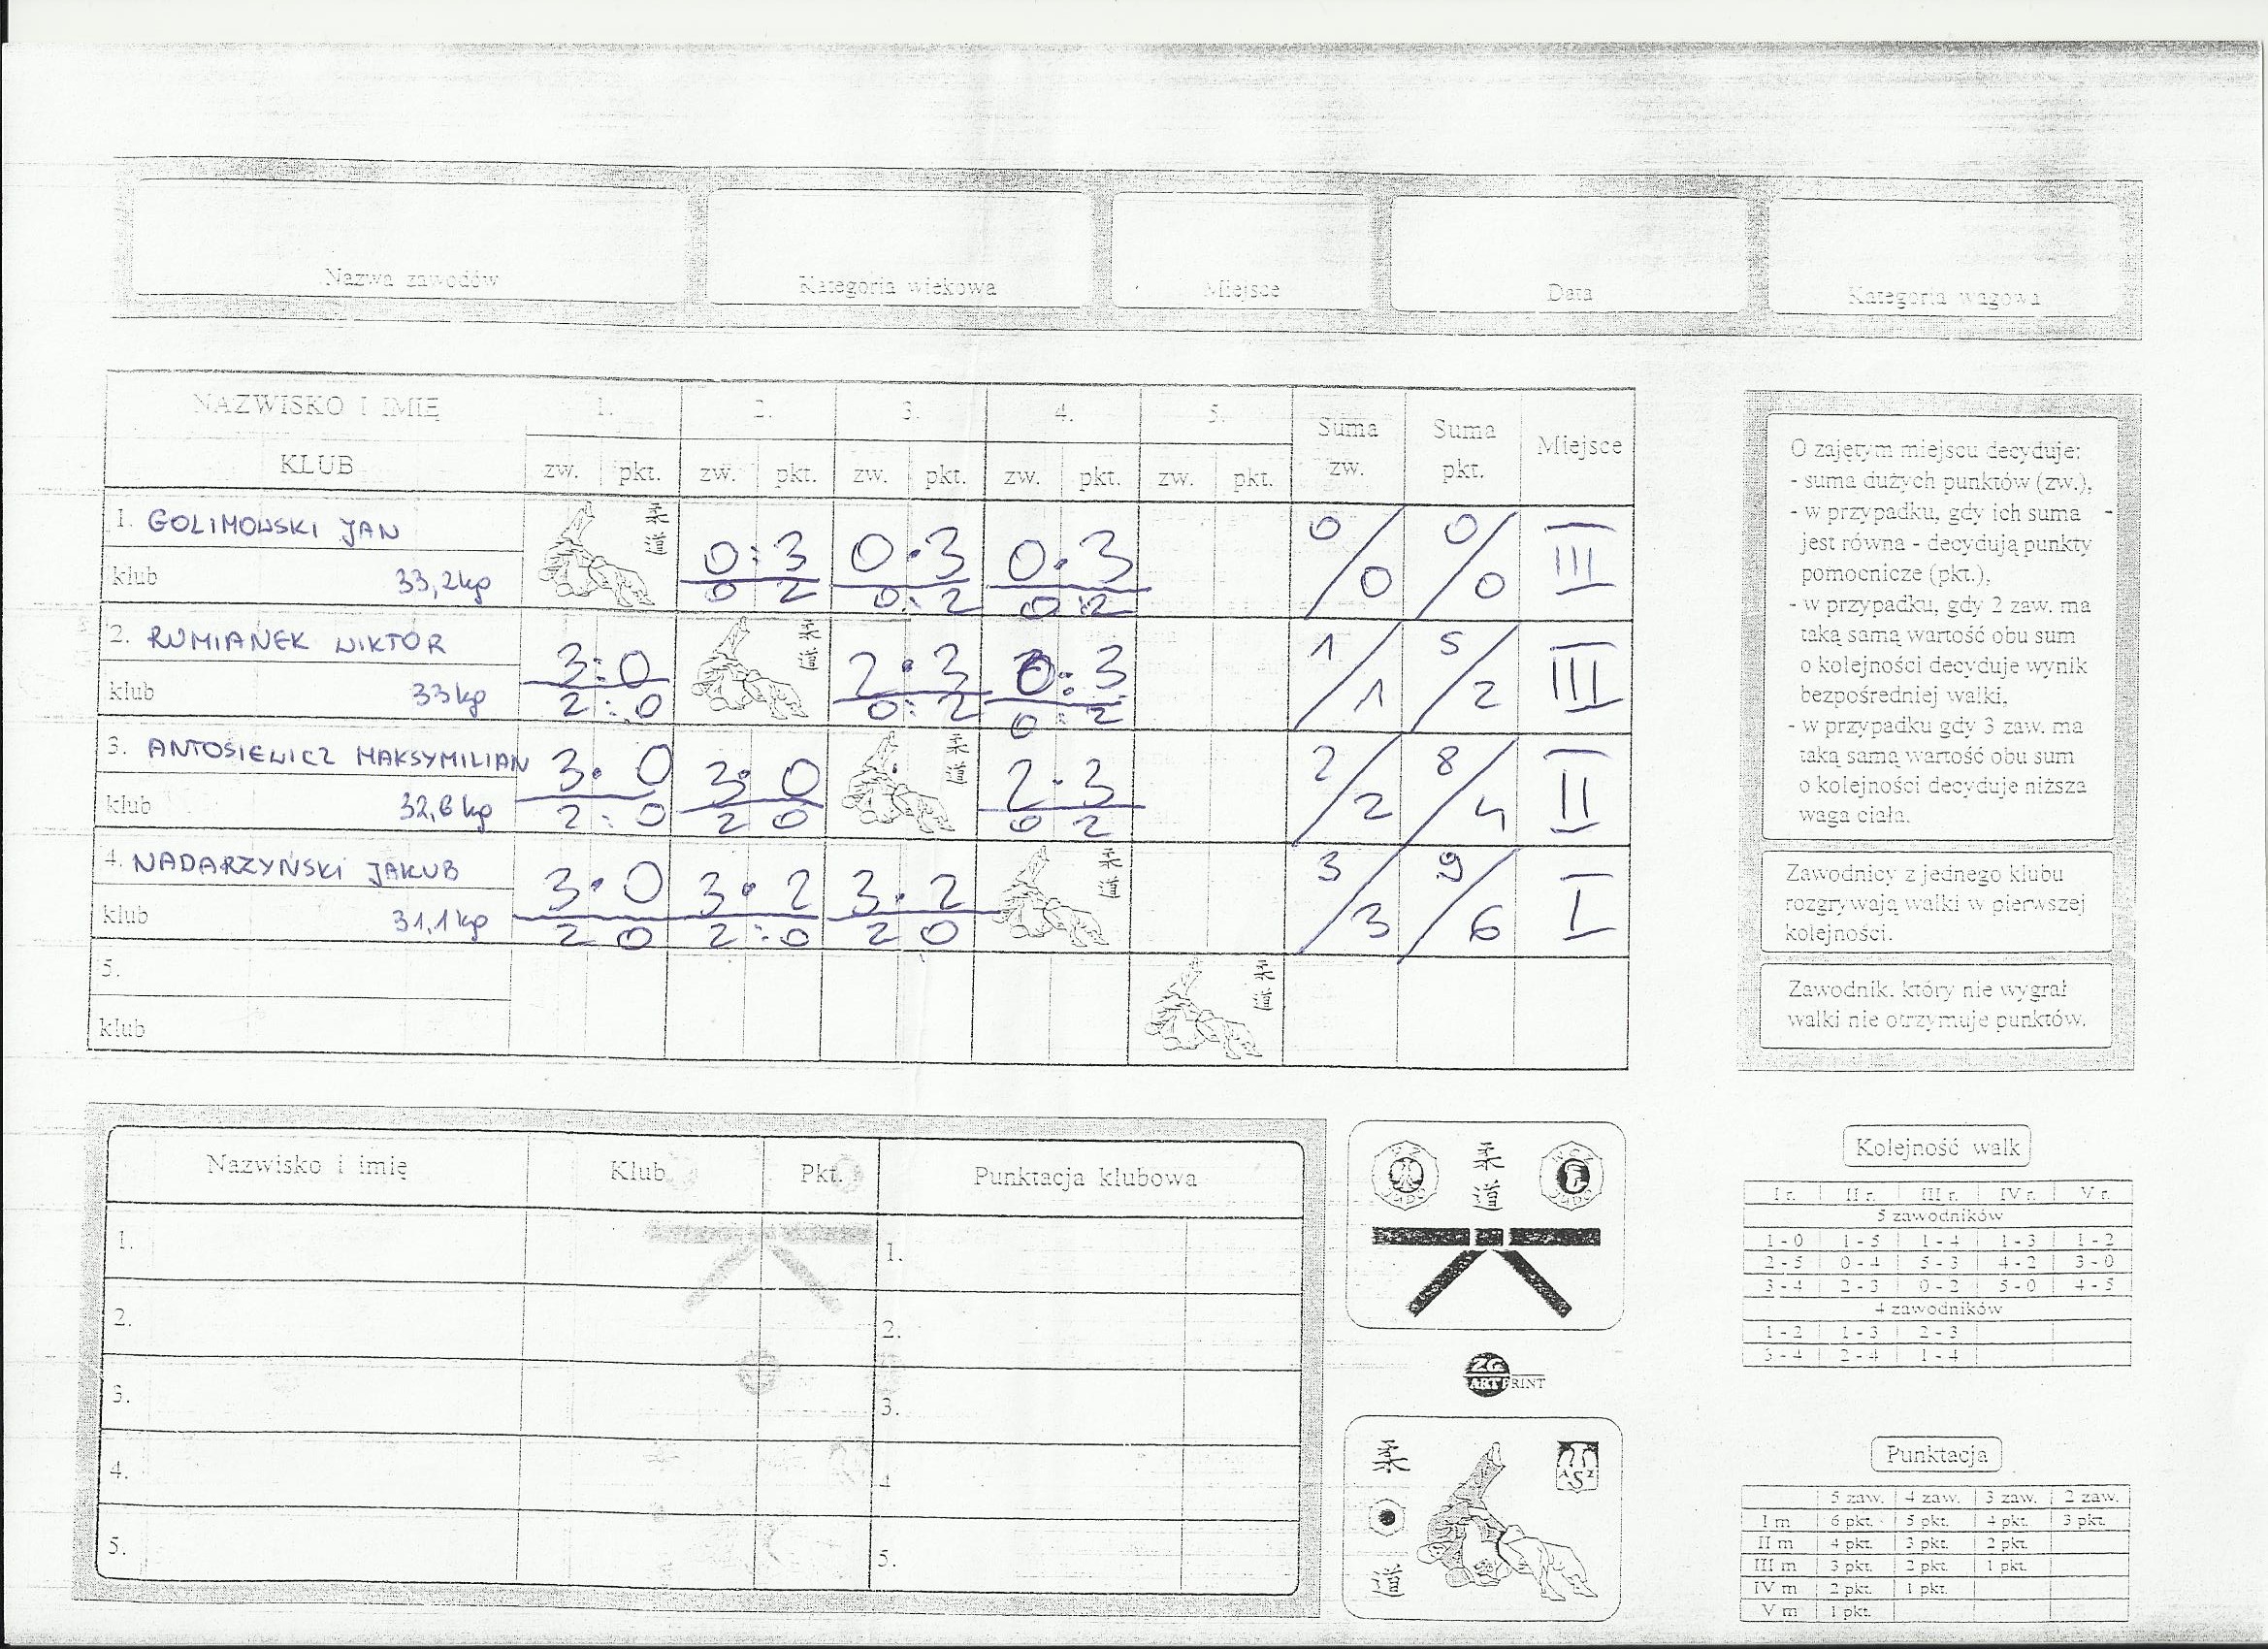 Nazwa zawodów
Kategoria wiekowa
Miejsce
Data
Kategoria wagowa
NAZWISKO I IMIĘ 1. 2. 3. 4. 5. Suma zw. Suma pkt. Miejsce
KLUB zw. pkt. zw. pkt. zw. pkt. zw. pkt. zw. pkt.
1. GOLIMOWSKI JAN 0:3 0:3 0:3 0 0 III
klub 33,2kg 0 2 0:2 0:2 0 0
2. RUMIANEK WIKTOR 3:0 2:3 0:3 1 5 III
klub 33kg 2:0 0:2 0:2 1 2
3. ANTOSIEWICZ MAKSYMILIAN 3:0 3:0 2:3 2 8 II
klub 32,6kg 2:0 2 0 0 2 2 4
4. NADARZYŃSKI JAKUB 3:0 3:2 3:2 3 9 I
klub 31,1kg 2 0 2:0 2 0 3 6
5.
klub
O zajętym miejscu decyduje:
- suma dużych punktów (zw.),
- w przypadku, gdy ich suma
jest równa - decydują punkty
pomocnicze (pkt.),
- w przypadku, gdy 2 zaw. ma
taką samą wartość obu sum
o kolejności decyduje wynik
bezpośredniej walki,
- w przypadku gdy 3 zaw. ma
taką samą wartość obu sum
o kolejności decyduje niższa
waga ciała.
Zawodnicy z jednego klubu
rozgrywają walki w pierwszej
kolejności.
Zawodnik, który nie wygrał
walki nie otrzymuje punktów.
Nazwisko i imię Klub Pkt. Punktacja klubowa
1. 1.
2. 2.
3. 3.
4. 4
5. 5.
柔
道
ZG
ARTPRINT
柔
道
AZS
Kolejność walk
I r. II r. III r. IV r. V r.
5 zawodników
1 - 0 1 - 5 1 - 4 1 - 3 1 - 2
2 - 5 0 - 4 5 - 3 4 - 2 3 - 0
3 - 4 2 - 3 0 - 2 5 - 0 4 - 5
4 zawodników
1 - 2 1 - 3 2 - 3
3 - 4 2 - 4 1 - 4
Punktacja
5 zaw. 4 zaw. 3 zaw. 2 zaw.
I m 6 pkt. 5 pkt. 4 pkt. 3 pkt.
II m 4 pkt. 3 pkt. 2 pkt.
III m 3 pkt. 2 pkt. 1 pkt.
IV m 2 pkt. 1 pkt.
V m 1 pkt.